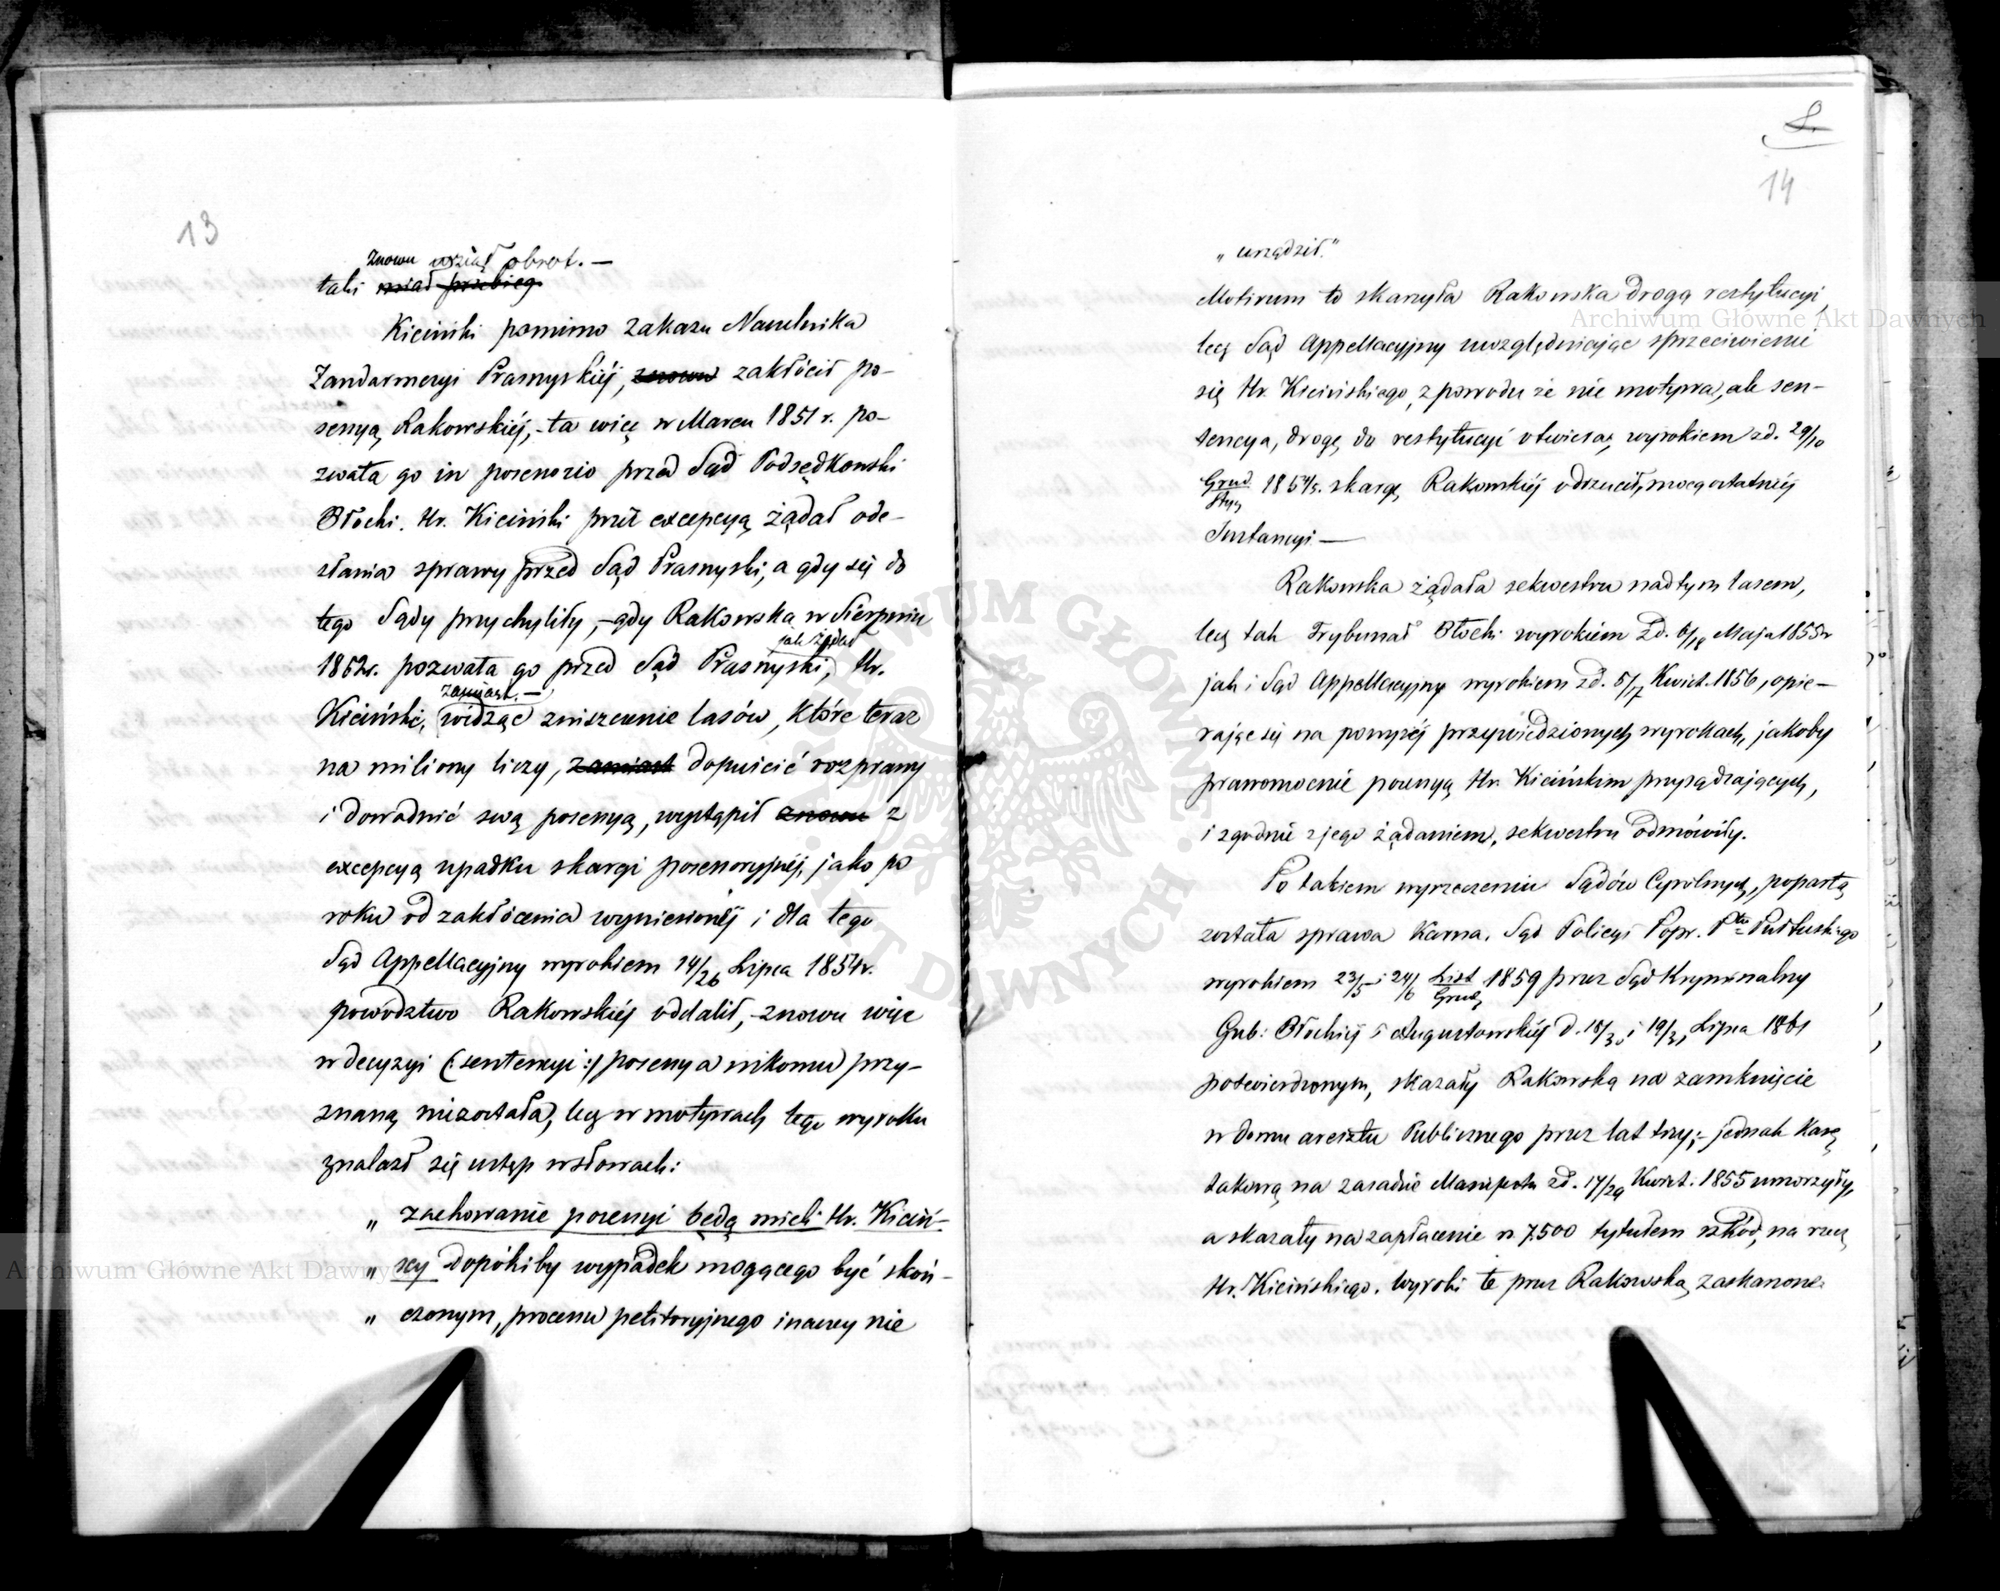 13
znowu wziął obrot. —
taki miał przebieg
Kiciński pomimo zakazu Naczelnika
Żandarmeryi Prasnyskiéj, znowu zakłócił po-
sessyą Rakowskiéj, - ta więc w Marcu 1851 r. po-
zwała go in possessorio przed Sąd Podsędkowski
Płocki. Hr. Kiciński przez excepcyą żądał ode-
słania sprawy przed Sąd Prasnyski, a gdy się do
tego Sądy przychyliły, - gdy Rakowska w Sierpniu
jak żądał
1852r. pozwała go przed Sąd Prasnyski, Hr.
zamiast. —
Kiciński, widząc zniszczenie lasów, które teraz
na miliony liczy, zamiast dopuścić rozprawy
i dowodnić swą possessyą, wystąpił znowu z
excepcyą upadku skargi possessoryjnéj, jako po
roku od zakłócenia wyniesionéj i dla tego
Sąd Appellacyjny wyrokiem 14/26 Lipca 1854r.
powództwo Rakowskiéj oddalił, - znowu więc
w decyzyi (: sentencyi :) possessya nikomu przy-
znaną niezostała, lecz w motywach tego wyroku
znalazł się ustęp w słowach:
„ zachowanie possessyi będą mieli Hr. Kiciń-
„ scy dopókiby wypadek mogącego być skoń-
„ czonym, processu petitoryjnego inaczey nie
8.
14
„ urządził."
Motivum to skarżyła Rakowska drogą restytucyi,
lecz Sąd Appellacyjny uwzględniając sprzeciwienie
się Hr. Kicińskiego, z powodu że nie motywa, ale sen-
tencya, drogę do restytucyi otwiera, wyrokiem z d. 29/10
Grud/Stycz 1854/5. skargę Rakowskiéj odrzucił, mocą ostatniéj
Instancyi —
Rakowska żądała sekwestru nad tym lasem,
lecz tak Trybunał Płocki wyrokiem z d. 6/18 Maja 1855r
jak i Sąd Appellacyjny wyrokiem z d. 5/17 Kwiet. 1856, opie-
rając się na powyżéj przywiedzionych wyrokach, jakoby
prawomocnie possessyą Hr. Kicińskim przysądzających,
i zgodnie z jego żądaniem, sekwestru odmówiły.
Po takiem wyrzeczeniu Sądów Cywilnych, popartą
została sprawa Karna. Sąd Policyi Popr. Ptu Pułtuskiego
wyrokiem 23/5 i 24/6 List/Grud 1859 przez Sąd Kryminalny
Gub: Płockiéj i Augustowskiéj d. 18/30 i 19/31 Lipca 1861
potwierdzonym, skazały Rakowską na zamknięcie
w domu aresztu Publicznego przez lat trzy; - jednak karę
takową na zasadzie Manifestu z d. 17/29 Kwiet: 1855 umorzyły,
a skazały na zapłacenie rs. 7500 tytułem szkód, na rzecz
Hr. Kicińskiego. Wyroki te przez Rakowską zaskarżone
Archiwum Główne Akt Dawnych
Archiwum Główne Akt Dawnych
ARCHIWUM GŁÓWNE AKT DAWNYCH